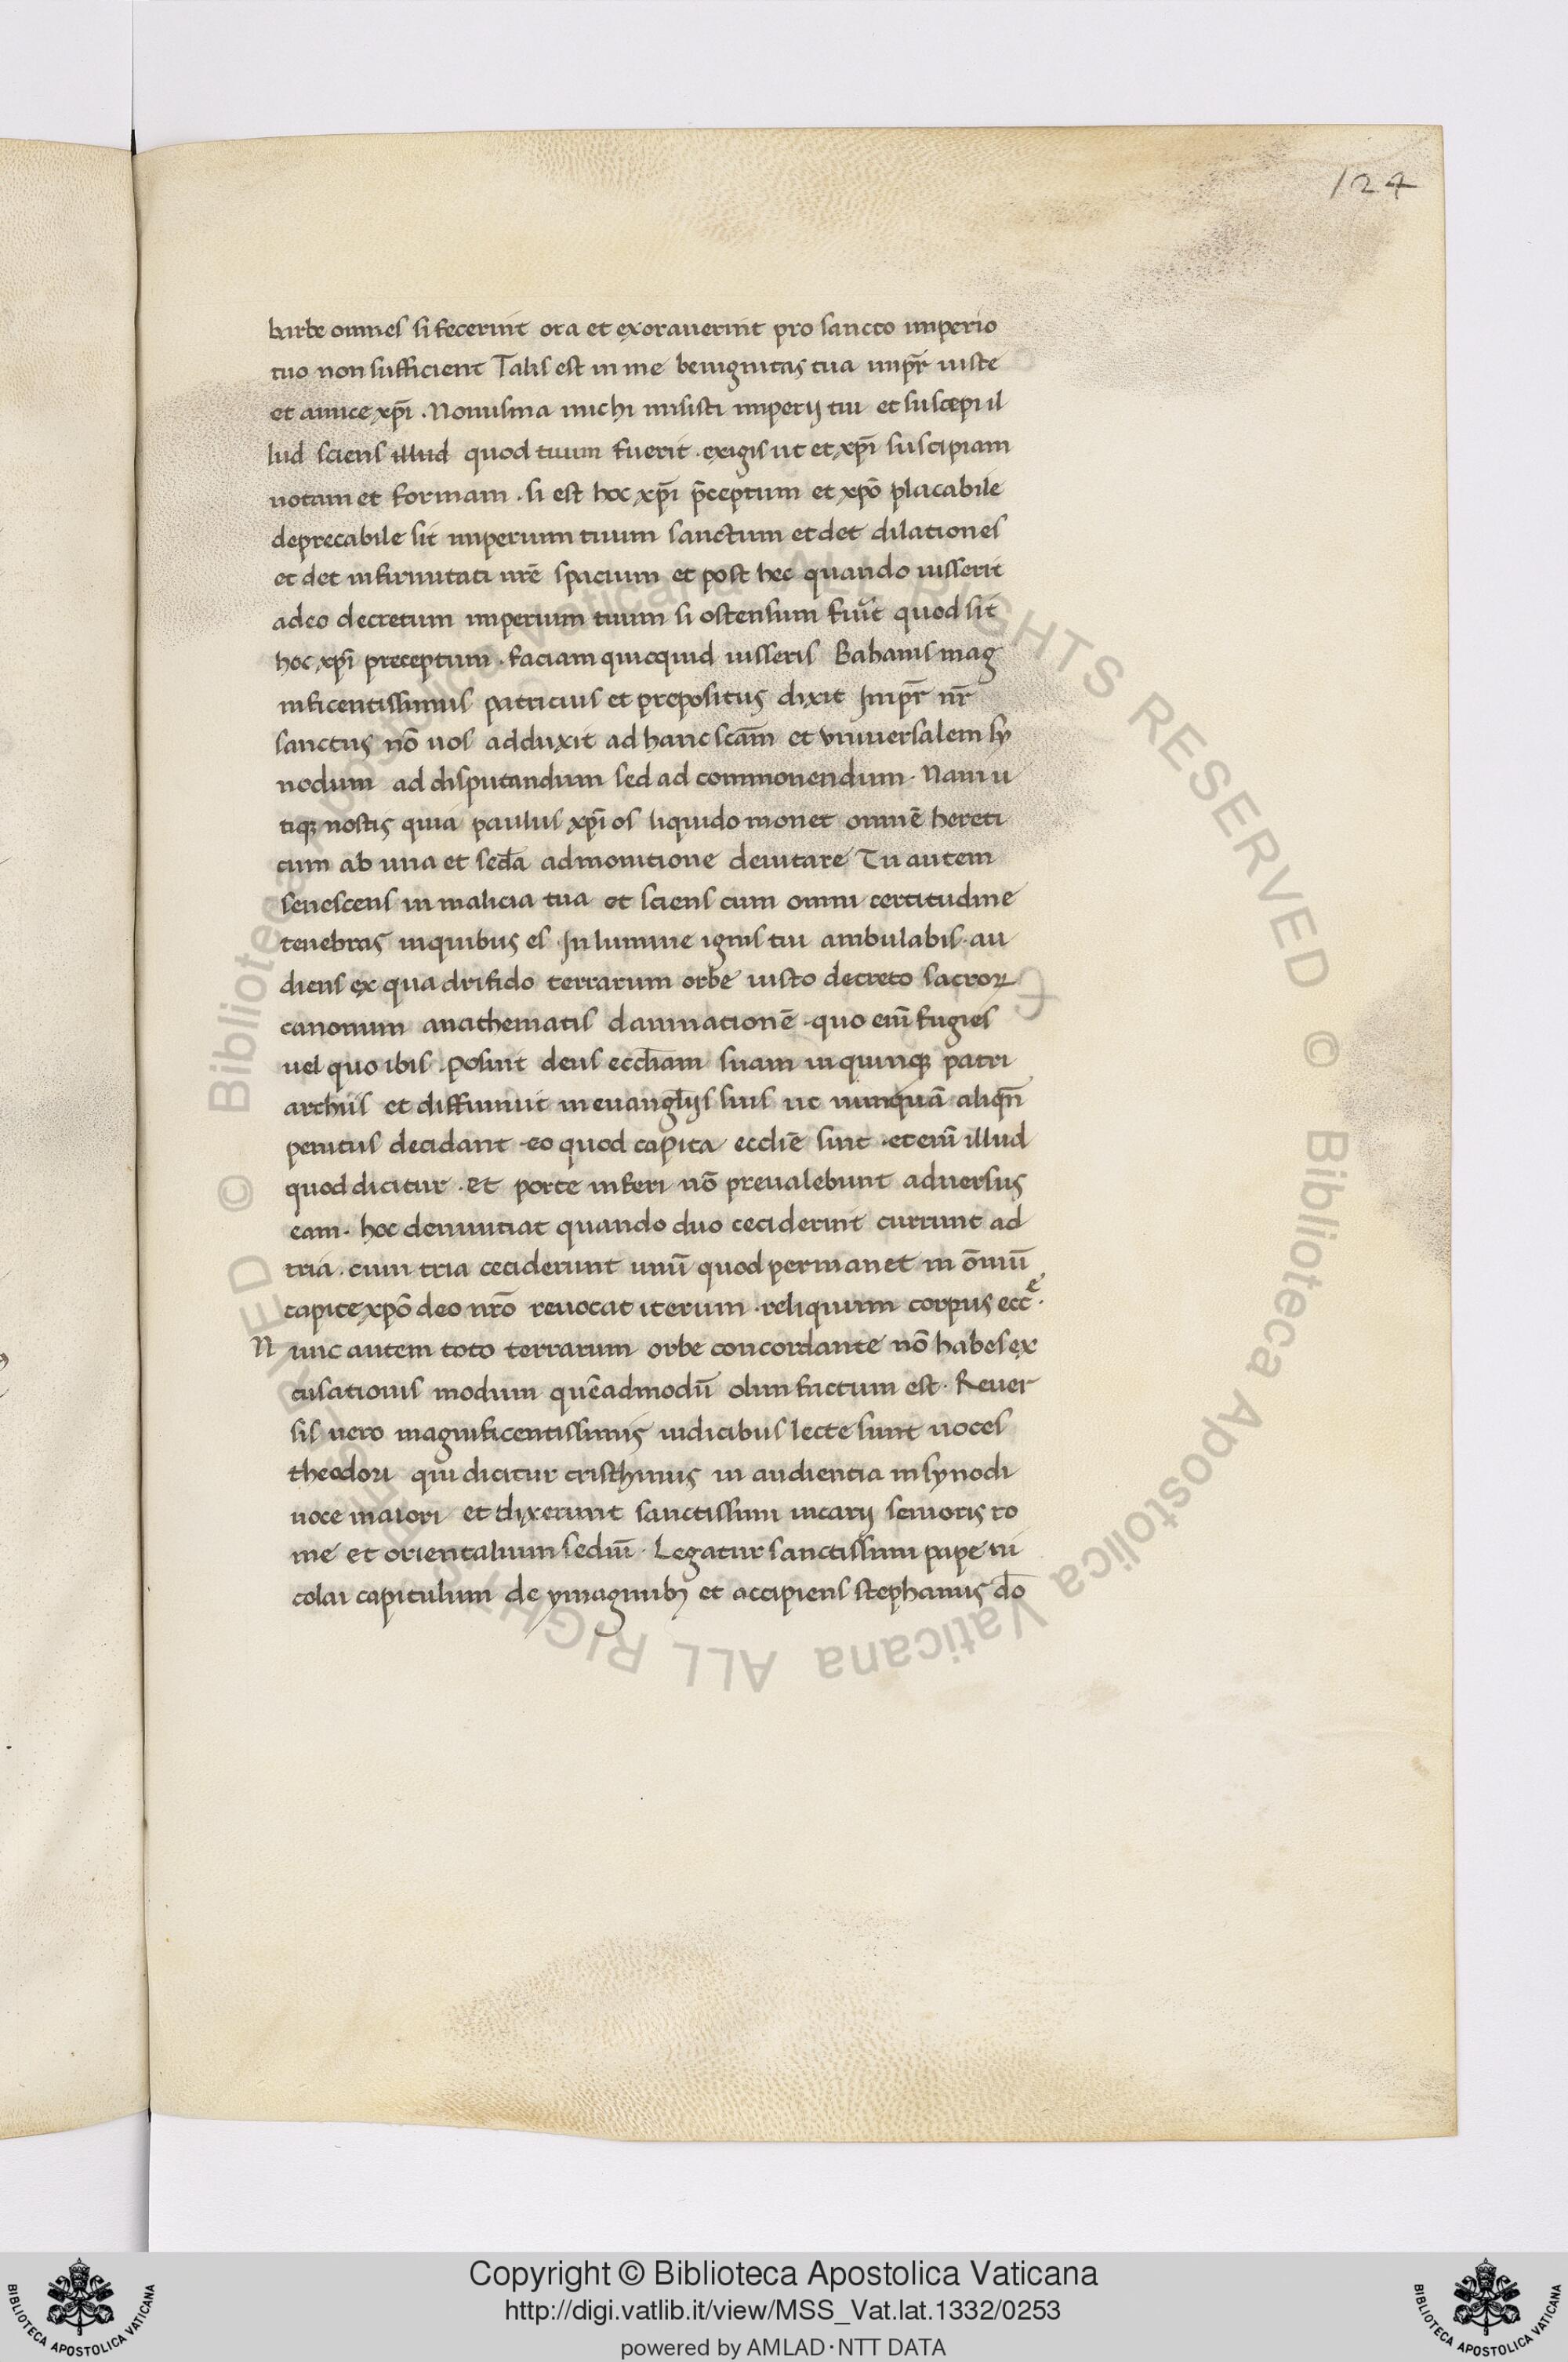 124
barbe omnes si fecerint ora et exorauerint pro sancto imperio
tuo non sufficient Talis est in me benignitas tua impr̄ iuste
et amice xp̄i . Nonisma michi misisti imperij tui et suscepi il
lud sciens illud quod tuum fuerit . exigis ut et xp̄i suscipiam
notam et formam . si est hoc xp̄i p̄ceptum et xpō placabile
deprecabile sit imperium tuum sanctum et det dilationes
et det infirmitati nrē spacium et post hec quando iusserit
a deo decretum imperium tuum si ostensum fuer̄it quod sit
hoc xp̄i preceptum . faciam quicquid iusseris Bahanis mag
nificentissimus patricius et prepositus dixit Impr̄ nr̄
sanctus nō uos adduxit ad hanc scam̄ et vniuersalem sy
nodum ad disputandum sed ad commonendum . Nam u
tiqꝫ nostis quia paulus xp̄i os liquido monet omnē hereti
cum ab una et secd̄a admonitione deuitare Tu autem
senescens in malicia tua et sciens cum omni certitudine
tenebras in quibus es In lumine ignis tui ambulabis . au
diens ex quadrifido terrarum orbe iusto decreto sacroꝝ
canonum anathematis damnationē . quo eni᷑ fugies
uel quo ibis . Posuit deus eccl̄iam suam in quinqꝫ patri
archis et diffiniuit in euangl̄ijs suis ut nunquā aliqn̄
penitus decidant . eo quod capita eccliē sint . et enī illud
quod dicitur . et porte inferi nō preualebunt aduersus
eam . hoc denuntiat quando duo ceciderint currunt ad
tria . cum tria ceciderunt unū quod permanet in ōmiū
capite xpō deo nrō reuocat iterum . reliquum corpus ecc̄e .
Nunc autem toto terrarum orbe concordante nō habes ex
cusationis modum quēadmodū olim factum est . Reuer
sis uero magnificentissimis iudicibus lecte sunt uoces
theodori qui dicitur cristhinus in audientia in synodi
uoce maiori et dixerunt sanctissimi uicarij senioris ro
me et orientalium sediū . Legatur sanctissimi pape ni
colai capitulum de ymaginibꝫ et accipiens stephanus do̅
© Biblioteca Apostolica Vaticana ALL RIGHTS RESERVED
Copyright © Biblioteca Apostolica Vaticana
http://digi.vatlib.it/view/MSS_Vat.lat.1332/0253
powered by AMLAD·NTT DATA
BIBLIOTECA APOSTOLICA VATICANA
BIBLIOTECA APOSTOLICA VATICANA